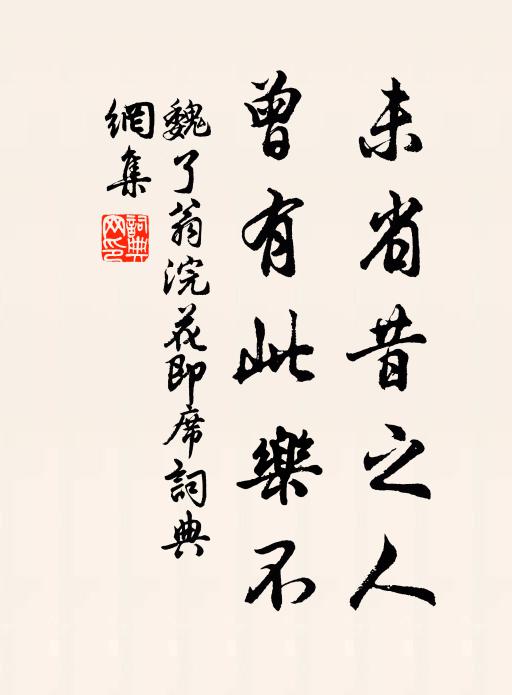 未省昔之人
曾有此樂不
魏了翁浣花即席詞典
網集
詞典網印